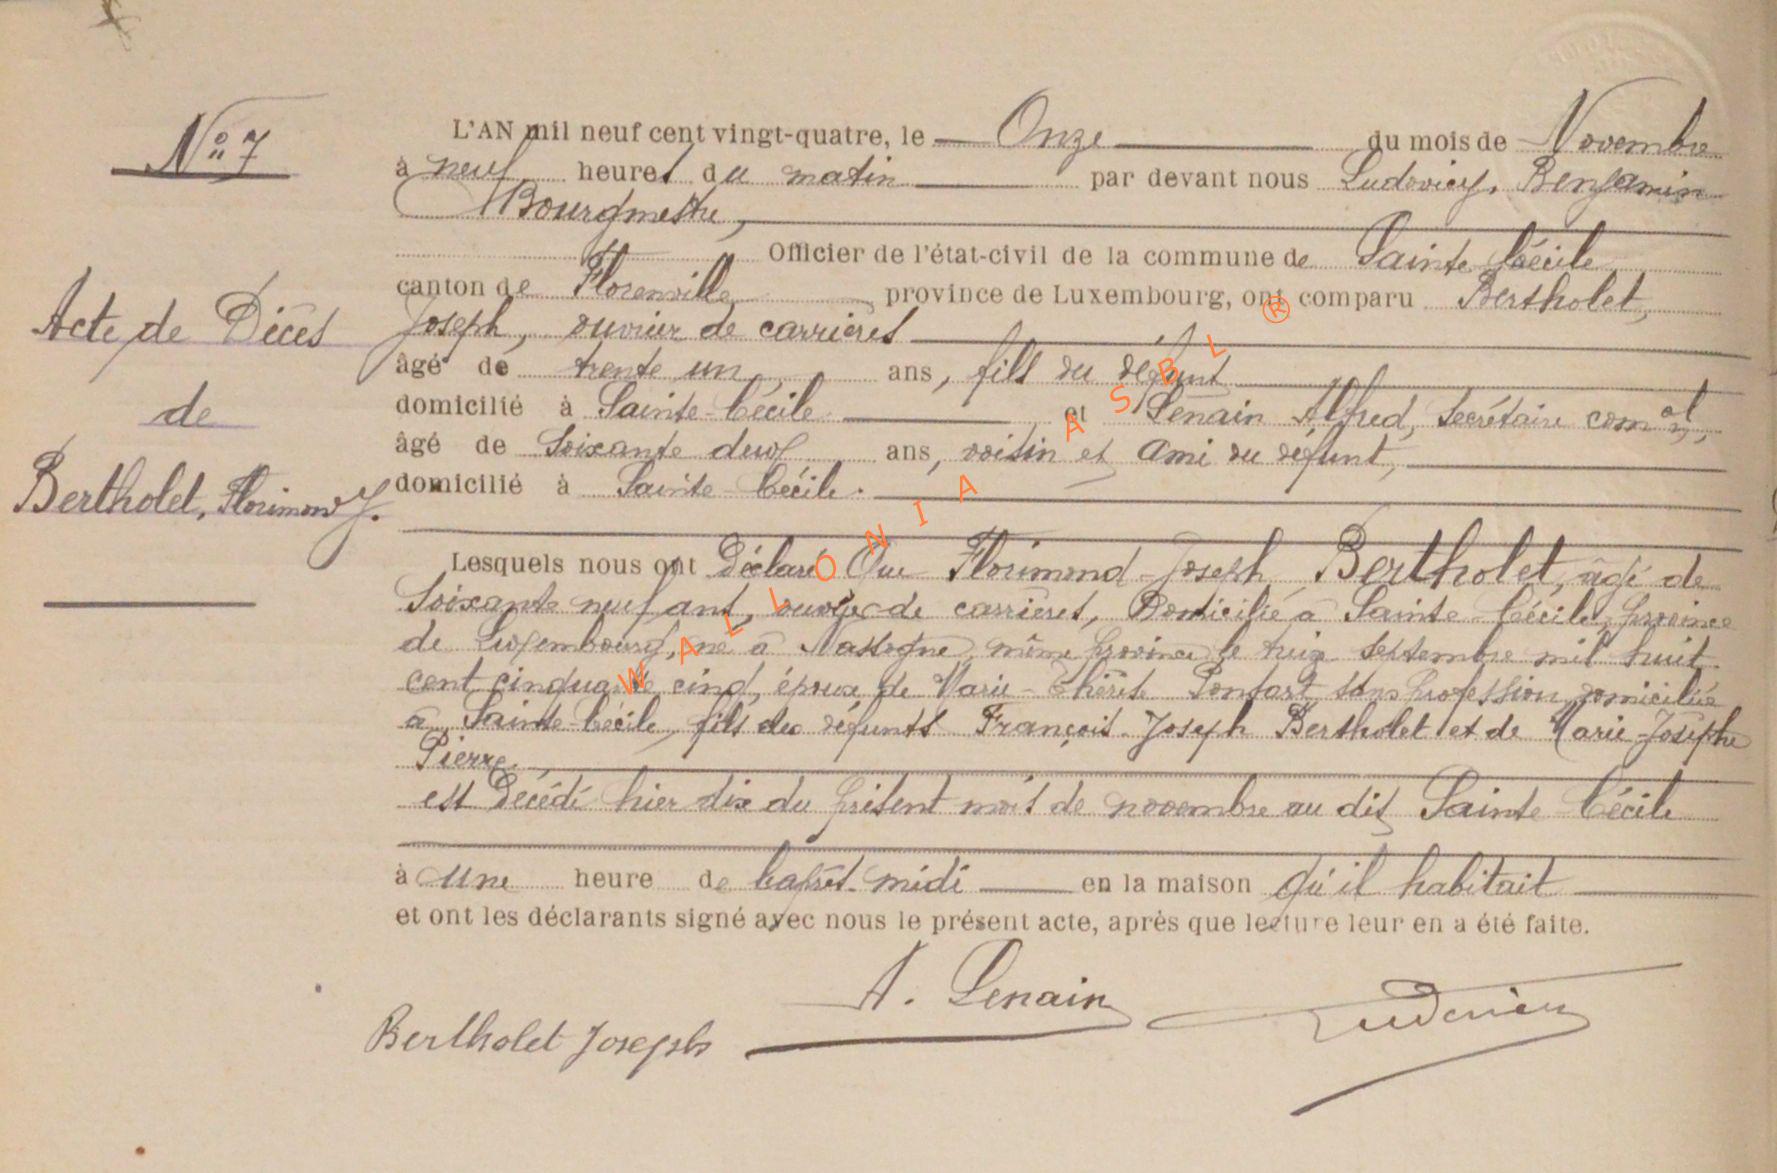 N° 7
Acte de Décès
de
Bertholet, Florimond J.
L'AN mil neuf cent vingt-quatre, le Onze du mois de Novembre
à neuf heures du matin par devant nous Ludovicy, Benjamin
Bourgmestre,
Officier de l'état-civil de la commune de Sainte Cécile
canton de Florenville, province de Luxembourg, ont comparu Bertholet,
Joseph, ouvrier de carrières
âgé de trente un ans, fils du défunt
domicilié à Sainte-Cécile et Lenain Alfred, secrétaire comal,
âgé de soixante deux ans, voisin et ami du défunt,
domicilié à Sainte Cécile.
Lesquels nous ont Déclaré Que Florimond-Joseph Bertholet, âgé de
soixante neuf ans, ouvrier de carrières, Domicilié à Sainte-Cécile, province
de Luxembourg, né à Nassogne, même province le treize septembre mil huit
cent cinquante cinq, époux de Marie-Thérèse Ponsart, sans profession, domiciliée
à Sainte-Cécile, fils des défunts François-Joseph Bertholet et de Marie-Josèphe
Pierre.
est Décédé hier dix du présent mois de novembre au dit Sainte Cécile
à une heure de l'après-midi en la maison qu'il habitait
et ont les déclarants signé avec nous le présent acte, après que lecture leur en a été faite.
A. Lenain
Bertholet Joseph
Ludovicy
WALLONIA ASBL ®